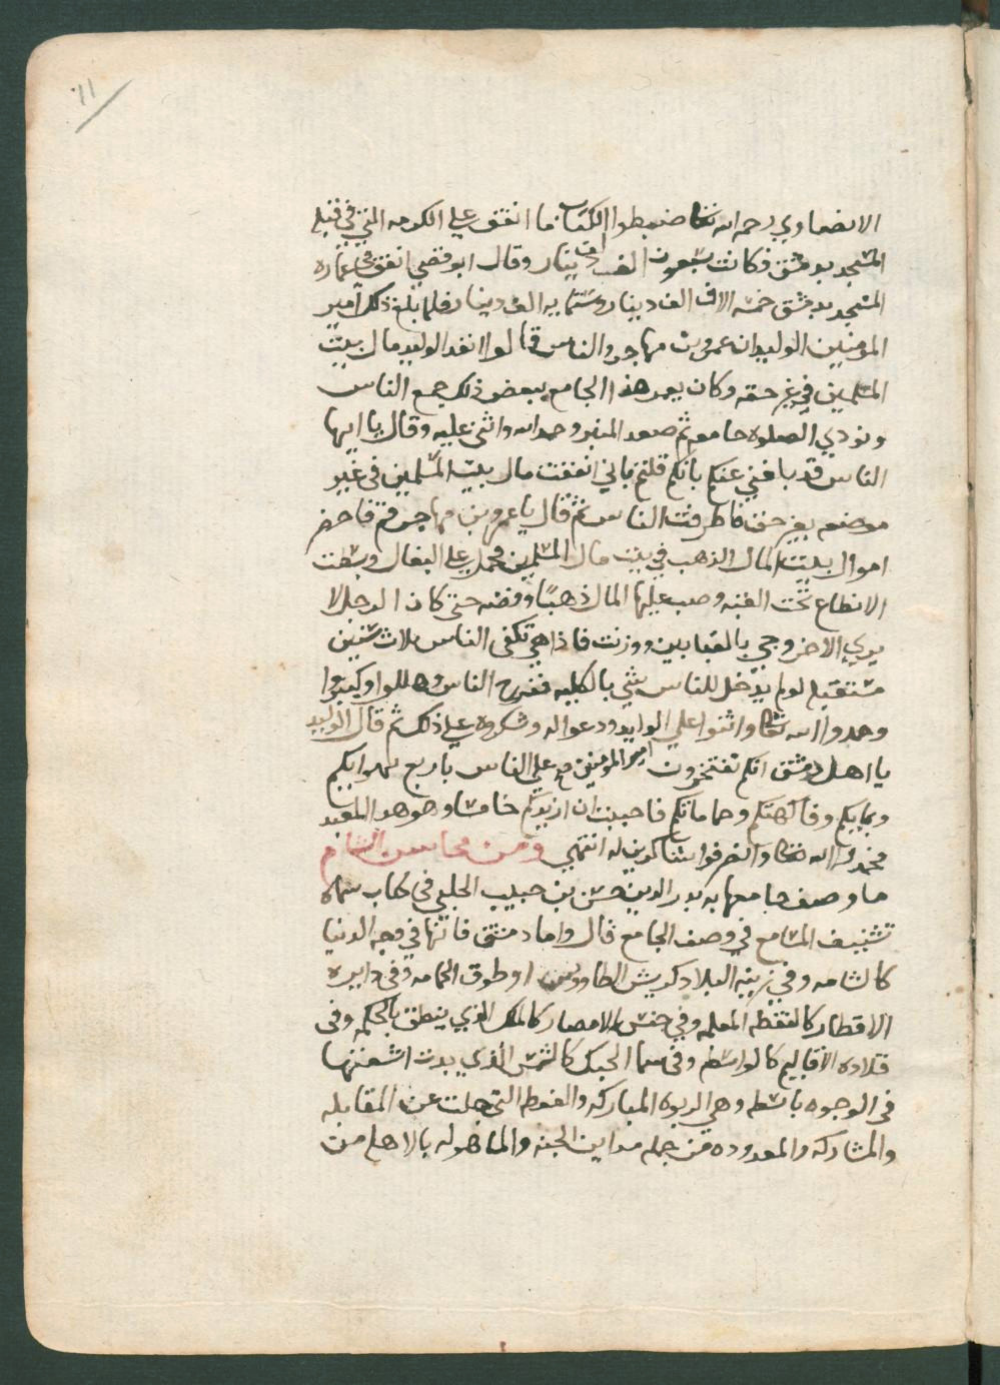 ١١
الانصاري رحمه الله تعالى ضبطوا الكتاب ما انفق علي الكرمه التي في قبله
المسجد بدمشق فكانت سبعون الف دينار وقال ابو قصي انفق في عماره
المسجد بدمشق خمسه الاف الف دينار وستمايه الف دينار فلما بلغ ذلك امير
المومنين الوليد ان عمرو بن مهاجر والناس قالوا انفد الوليد مال بيت
المسلمين في غير حقه وكان يعمر هذا الجامع ببعض ذلك جمع الناس
ونودي الصلوه جامعه ثم صعد المنبر وحمد الله واثني عليه وقال يا ايها
الناس قد بلغني عنكم بانكم قلتم باني انفقت مال بيت المسلمين في غير
موضعه بغير حق فاطرقت الناس ثم قال يا عمرو بن مهاجر قم فاحضر
اموال بيت المال الذهب في بيت مال المسلمين فحمل علي البغال وبسطت
الانطاع تحت القبه وصب عليها المال ذهبًا وفضه حتي كان الرجل لا
يري الاخر وجي بالقبابين ووزنت فاذا هي تكفي الناس ثلاث سنين
مستقبله لو لم يدخل للناس شي بالكليه ففرح الناس وهللوا وكبروا
وحمدوا الله تعالى واثنوا علي الوليد ودعوا له وشكروه علي ذلك ثم قال الوليد
يا اهل دمشق انكم تفتخرون امير المومنين علي الناس باربع بهوايكم
وبمايكم وفاكهتكم وحماماتكم فاحببت ان ازيدكم خامسا وهو هذا المعبد
فحمدوا الله تعالى وانصرفوا شاكرين له انتهي ومن محاسن الشام
ما وصف جامعها به بدر الدين حسن بن حبيب الحلبي في كتاب سماه
تشنيف المسامع في وصف الجامع قال واما دمشق فانها في وجه الدنيا
كالشامه وفي زينه البلاد كريش الطاووس او طوق الحمامه وفي دايره
الاقطار كالنقطه المعلمه وفي جنس الامصار كالملك الذي ينطق بالحكمه وفي
قلاده الاقاليم كالواسطه وفي سما الحبك كالشمس الذي بدت اشعتها
في الوجوه باسطه وهي الربوه المباركه والغوطه التي جلت عن المقابله
والمشاركه والمعدوده من جمله مداين الجنه والماهوله بالاهله من